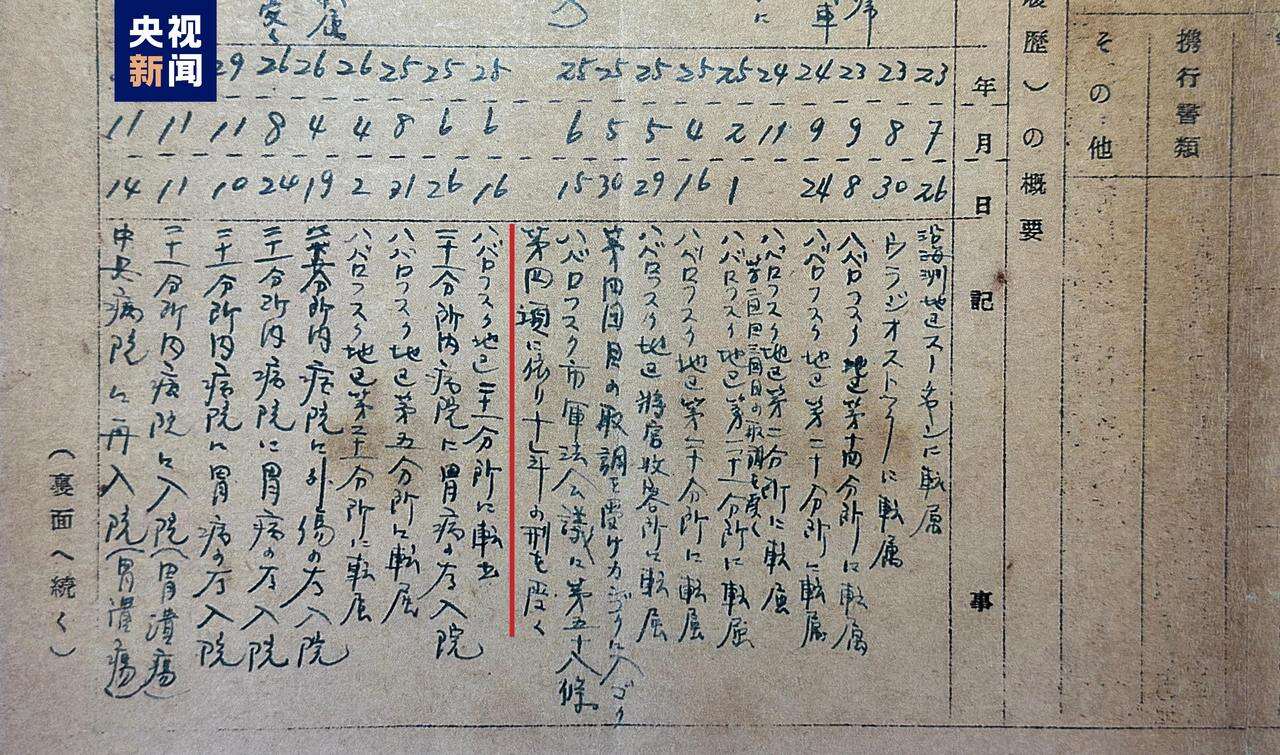 央视
新闻
携行書類
その他
歴)の概要
年月日 記事
23 7 26 沿海洲地区スーチャンに転属
23 8 30 ウラジオストックに転属
23 9 8 ハバロフスク地区第十四分所に転属
24 9 24 ハバロフスク地区第二十分所に転属
24 11 ハバロフスク地区第二分所に転属
第二回目三回目の取調を受く
25 2 1 ハバロフスク地区第二十一分所に転属
25 4 16 ハバロフスク地区第二十分所に転属
25 5 29 ハバロフスク地区將官收容所に転属
25 5 30 第四回目の取調を受け 入ゴク
25 6 15 ハバロフスク市軍法会議に第五十八條
第四項に依り十七年の刑を受く
25 6 16 ハバロフスク地区二十一分所に転出
25 6 26 二十一分所内病院に胃病の為入院
25 8 21 ハバロフスク地区第五分所に転属
26 4 2 ハバロフスク地区第二十一分所に転属
26 4 19 分所内病院に外傷の為入院
26 8 24 二十一分所内病院に胃病の為入院
29 11 10 二十一分所内病院に胃病の為入院
11 11 二十一分所内病院に入院(胃潰瘍)
11 14 中央病院に再入院(胃潰瘍)
(裏面へ続く)